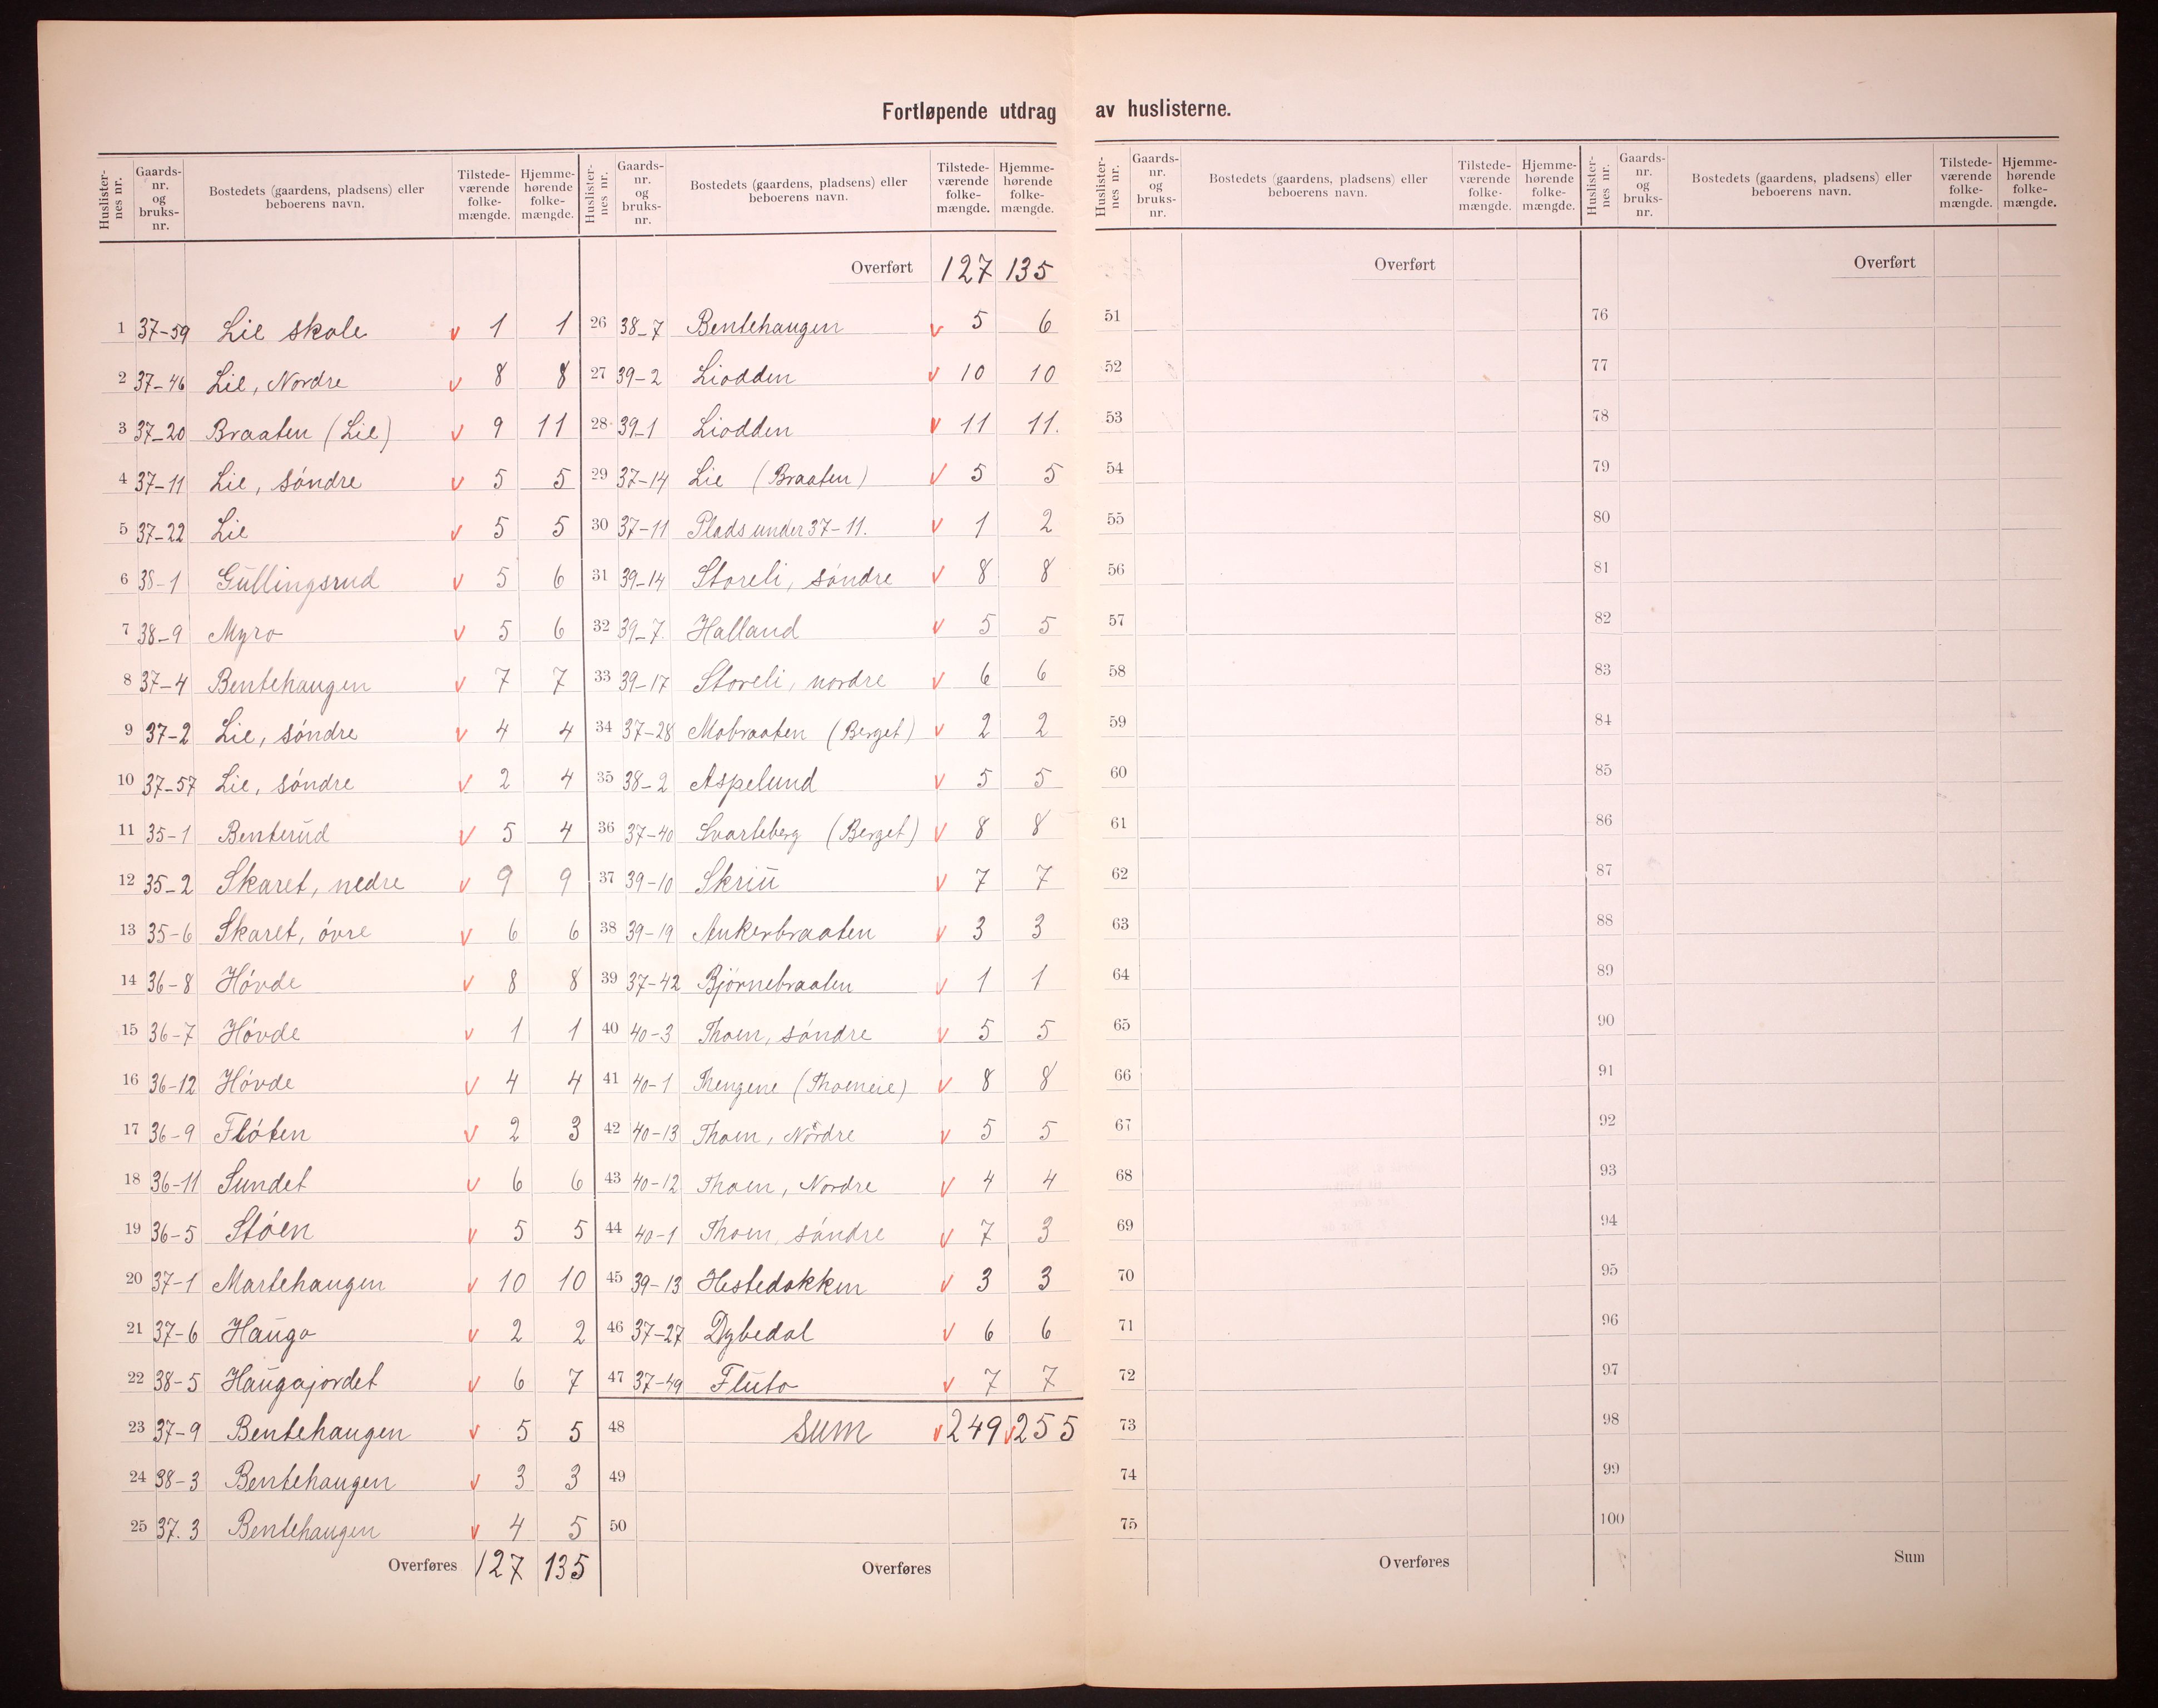 Fortløpende utdrag av huslisterne.
Huslisternes nr. Gaardsnr. og bruksnr. Bostedets (gaardens, pladsens) eller beboerens navn. Tilstedeværende folkemængde. Hjemmehørende folkemængde.
1 37-59 Lie skole v 1 1
2 37-46 Lie, Nordre v 8 8
3 37-20 Braaten (Lie) v 9 11
4 37-11 Lie, søndre v 5 5
5 37-22 Lie v 5 5
6 38-1 Gullingsrud v 5 6
7 38-9 Myro v 5 6
8 37-4 Bentehaugen v 7 7
9 37-2 Lie, søndre v 4 4
10 37-57 Lie, søndre v 2 4
11 35-1 Benterud v 5 4
12 35-2 Skaret, nedre v 9 9
13 35-6 Skaret, óvre v 6 6
14 36-8 Hóvde v 8 8
15 36-7 Hóvde v 1 1
16 36-12 Hóvde v 4 4
17 36-9 Flóten v 2 3
18 36-11 Sundet v 6 6
19 36-5 Stóen v 5 5
20 37-1 Martehaugen v 10 10
21 37-6 Haugo v 2 2
22 38-5 Haugajordet v 6 7
23 37-9 Bentehaugen v 5 5
24 38-3 Bentehaugen v 3 3
25 37.3 Bentehaugen v 4 5
Overføres 127 135
Huslisternes nr. Gaardsnr. og bruksnr. Bostedets (gaardens, pladsens) eller beboerens navn. Tilstedeværende folkemængde. Hjemmehørende folkemængde.
Overført 127 135
26 38-7 Bentehaugen v 5 6
27 39-2 Liodden v 10 10
28 39-1 Liodden v 11 11.
29 37-14 Lie (Braaten) v 5 5
30 37-11 Plads under 37-11. v 1 2
31 39-14 Storeli, søndre v 8 8
32 39-7 Halland v 5 5
33 39-17 Storeli, nordre v 6 6
34 37-28 Mobraaten (Berget) v 2 2
35 38-2 Aspelund v 5 5
36 37-40 Svarteberg (Berget) v 8 8
37 39-10 Skriu v 7 7
38 39-19 Ankerbraaten v 3 3
39 37-42 Bjørnebraaten v 1 1
40 40-3 Thoen, søndre v 5 5
41 40-1 (Thoeneie) v 8 8
42 40-13 Thoen, Nordre v 5 5
43 40-12 Thoen, Nordre v 4 4
44 40-1 Thoen, søndre v 7 3
45 39-13 Hestedokken v 3 3
46 37-27 Dybedal v 6 6
47 37-49 Fluto v 7 7
48 Sum v 249 v 255
49
50
Overføres
Huslisternes nr. Gaardsnr. og bruksnr. Bostedets (gaardens, pladsens) eller beboerens navn. Tilstedeværende folkemængde. Hjemmehørende folkemængde.
Overført
51
52
53
54
55
56
57
58
59
60
61
62
63
64
65
66
67
68
69
70
71
72
73
74
75
Overføres
Huslisternes nr. Gaardsnr. og bruksnr. Bostedets (gaardens, pladsens) eller beboerens navn. Tilstedeværende folkemængde. Hjemmehørende folkemængde.
Overført
76
77
78
79
80
81
82
83
84
85
86
87
88
89
90
91
92
93
94
95
96
97
98
99
100
Sum